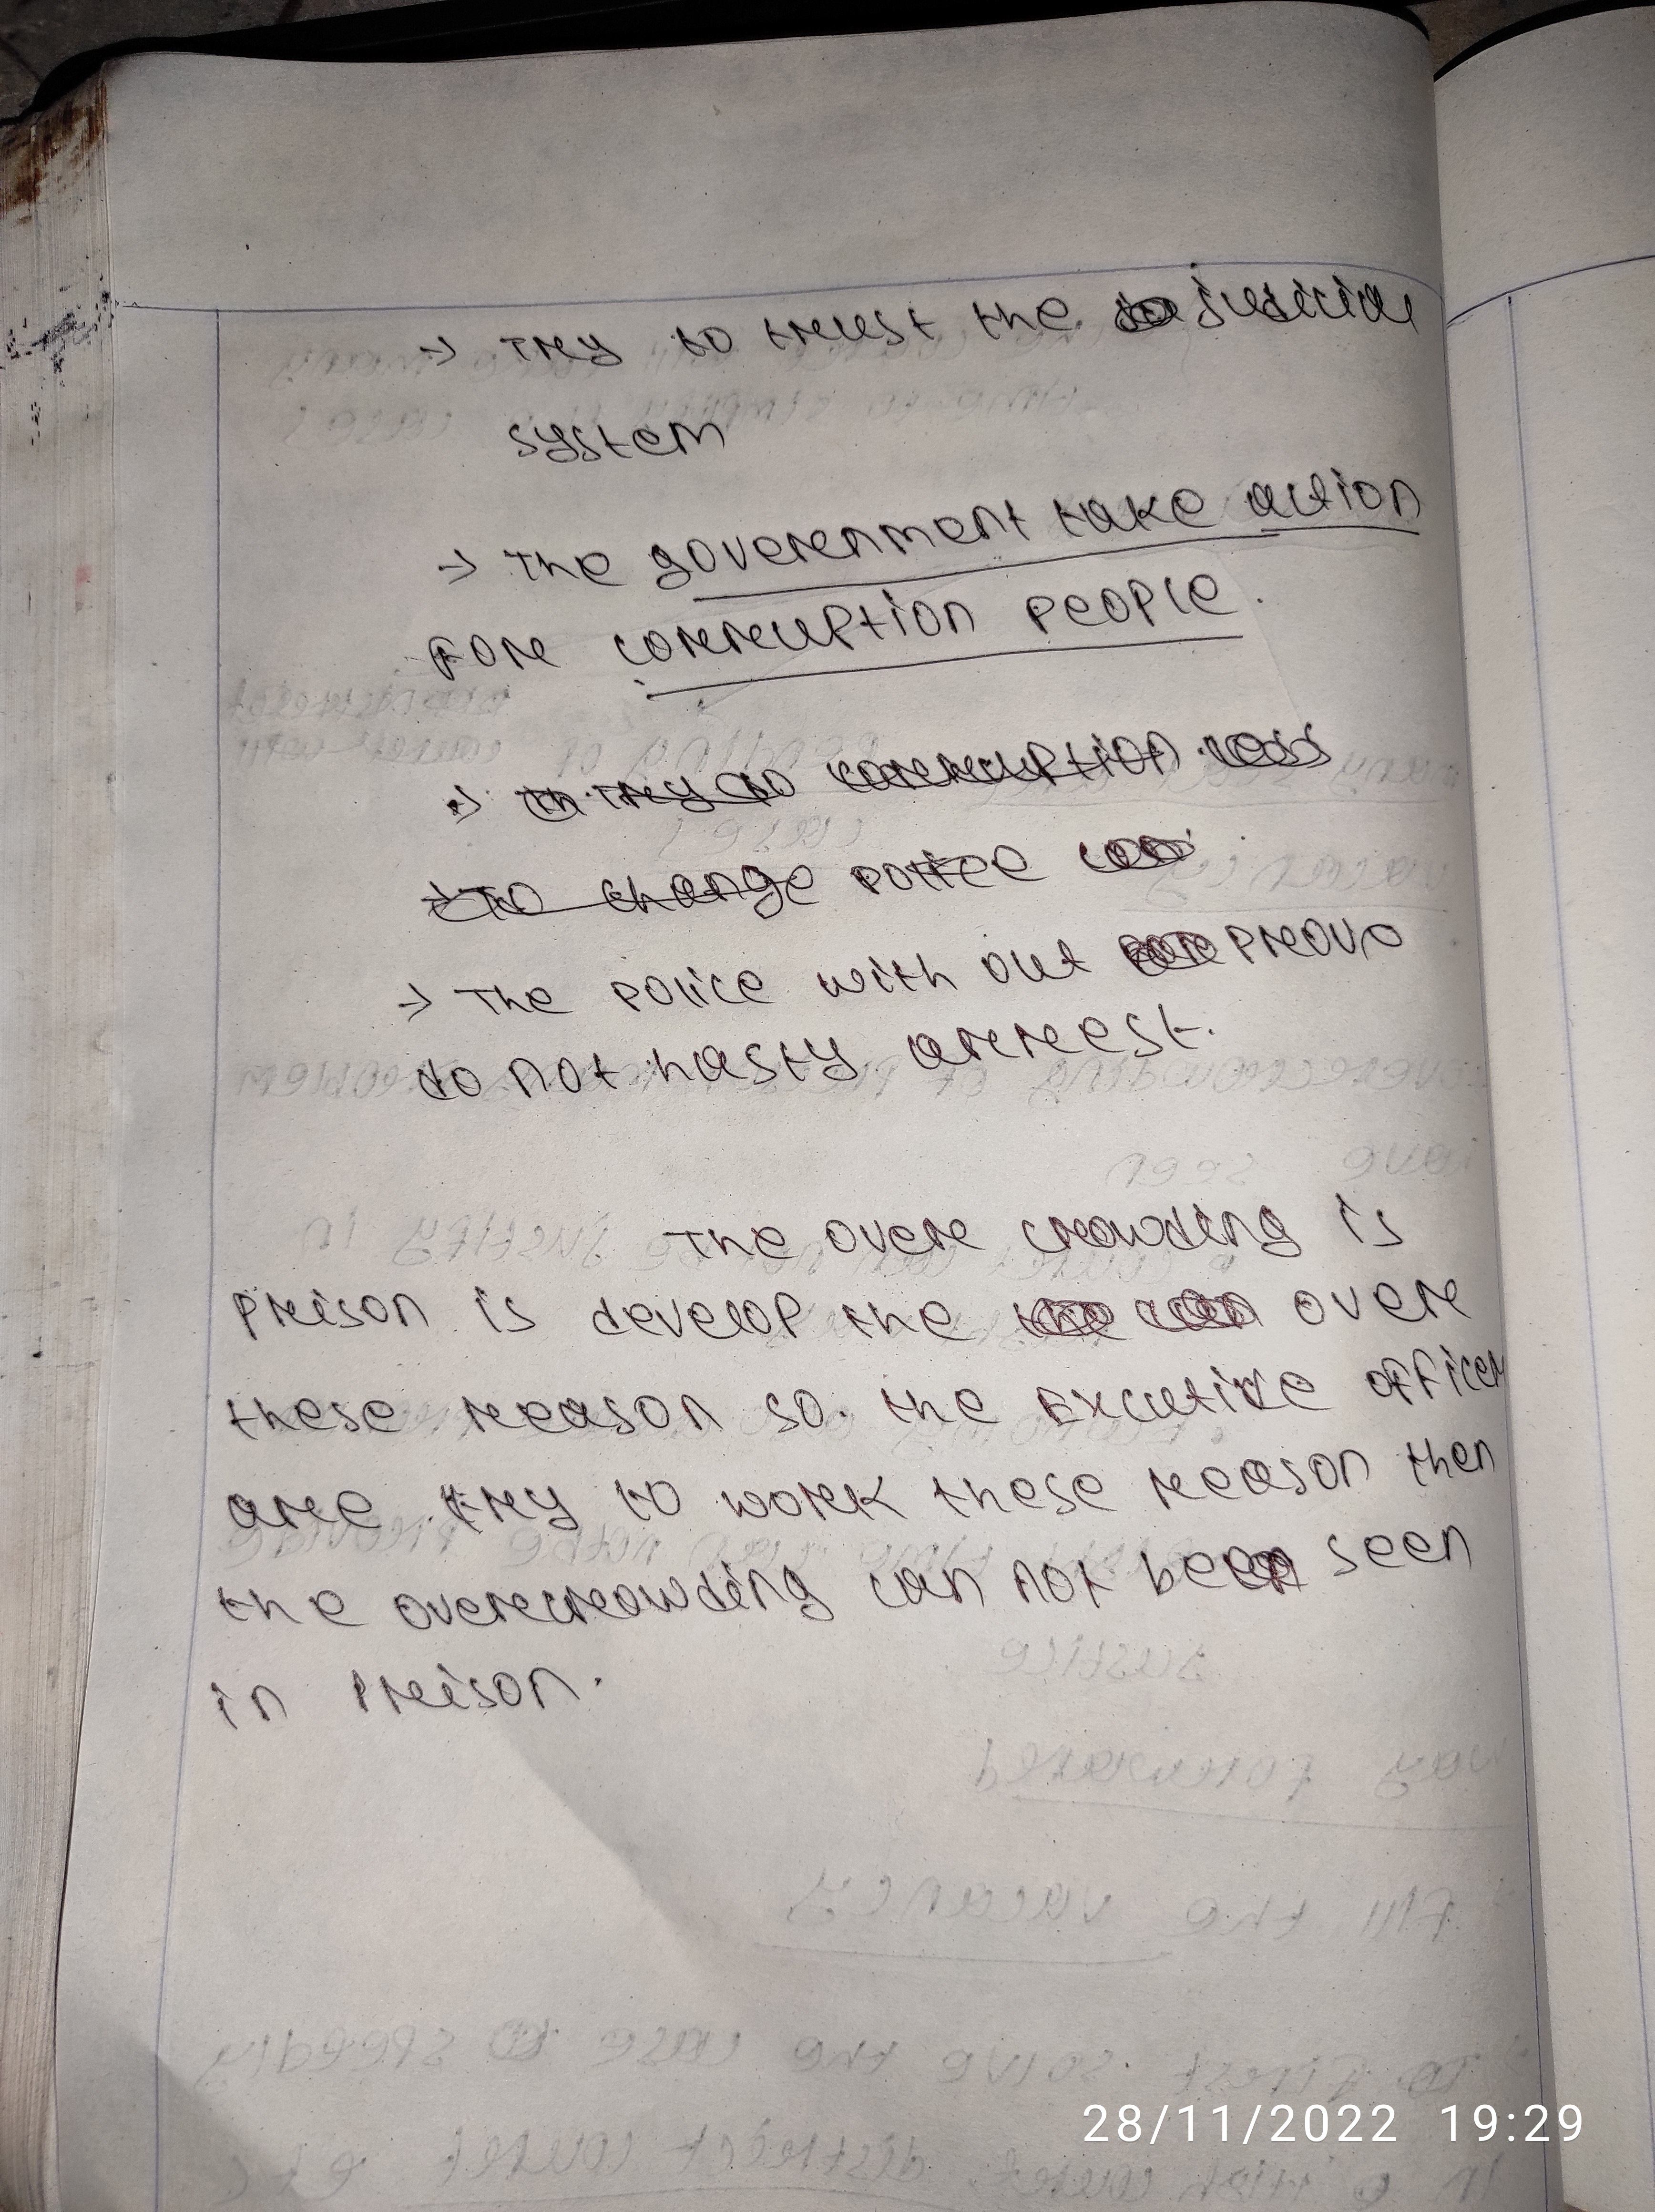 → Try to trust the judicial
system
→ The government take action
for corruption people.
→ Try to corruption
→ To change police
→ The police with out prove
do not hasty arrest.
The over crowding is
prison is develop the over
these reason so. the Excutive officer
are try to work these reason then
the overcrowding can not been seen
in prison.
28/11/2022 19:29